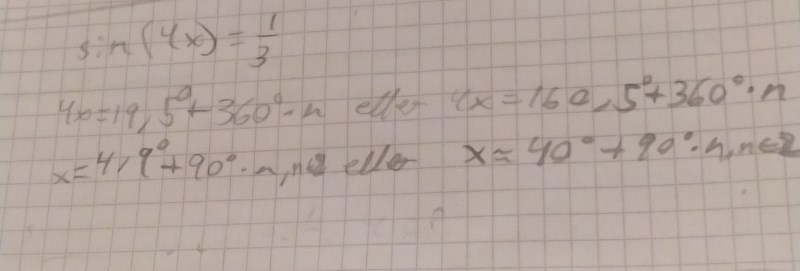 sin(4x) = 1/3
4x = 19,5° + 360° · n eller 4x = 160,5° + 360° · n
x = 4,9° + 90° · n, n∈Z eller x = 40° + 90° · n, n∈Z